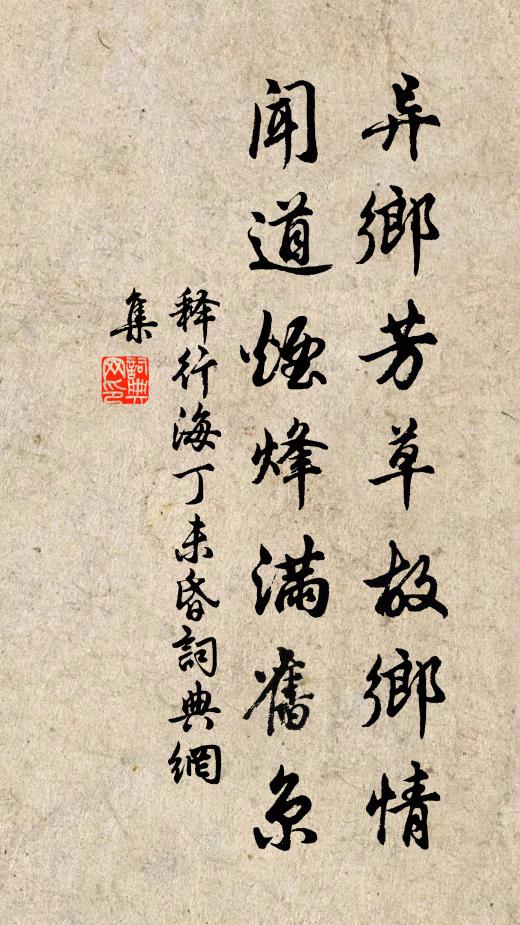 异鄉芳草故鄉情
聞道煙烽滿舊京
释行海丁未昏詞典網
集
詞典
网印